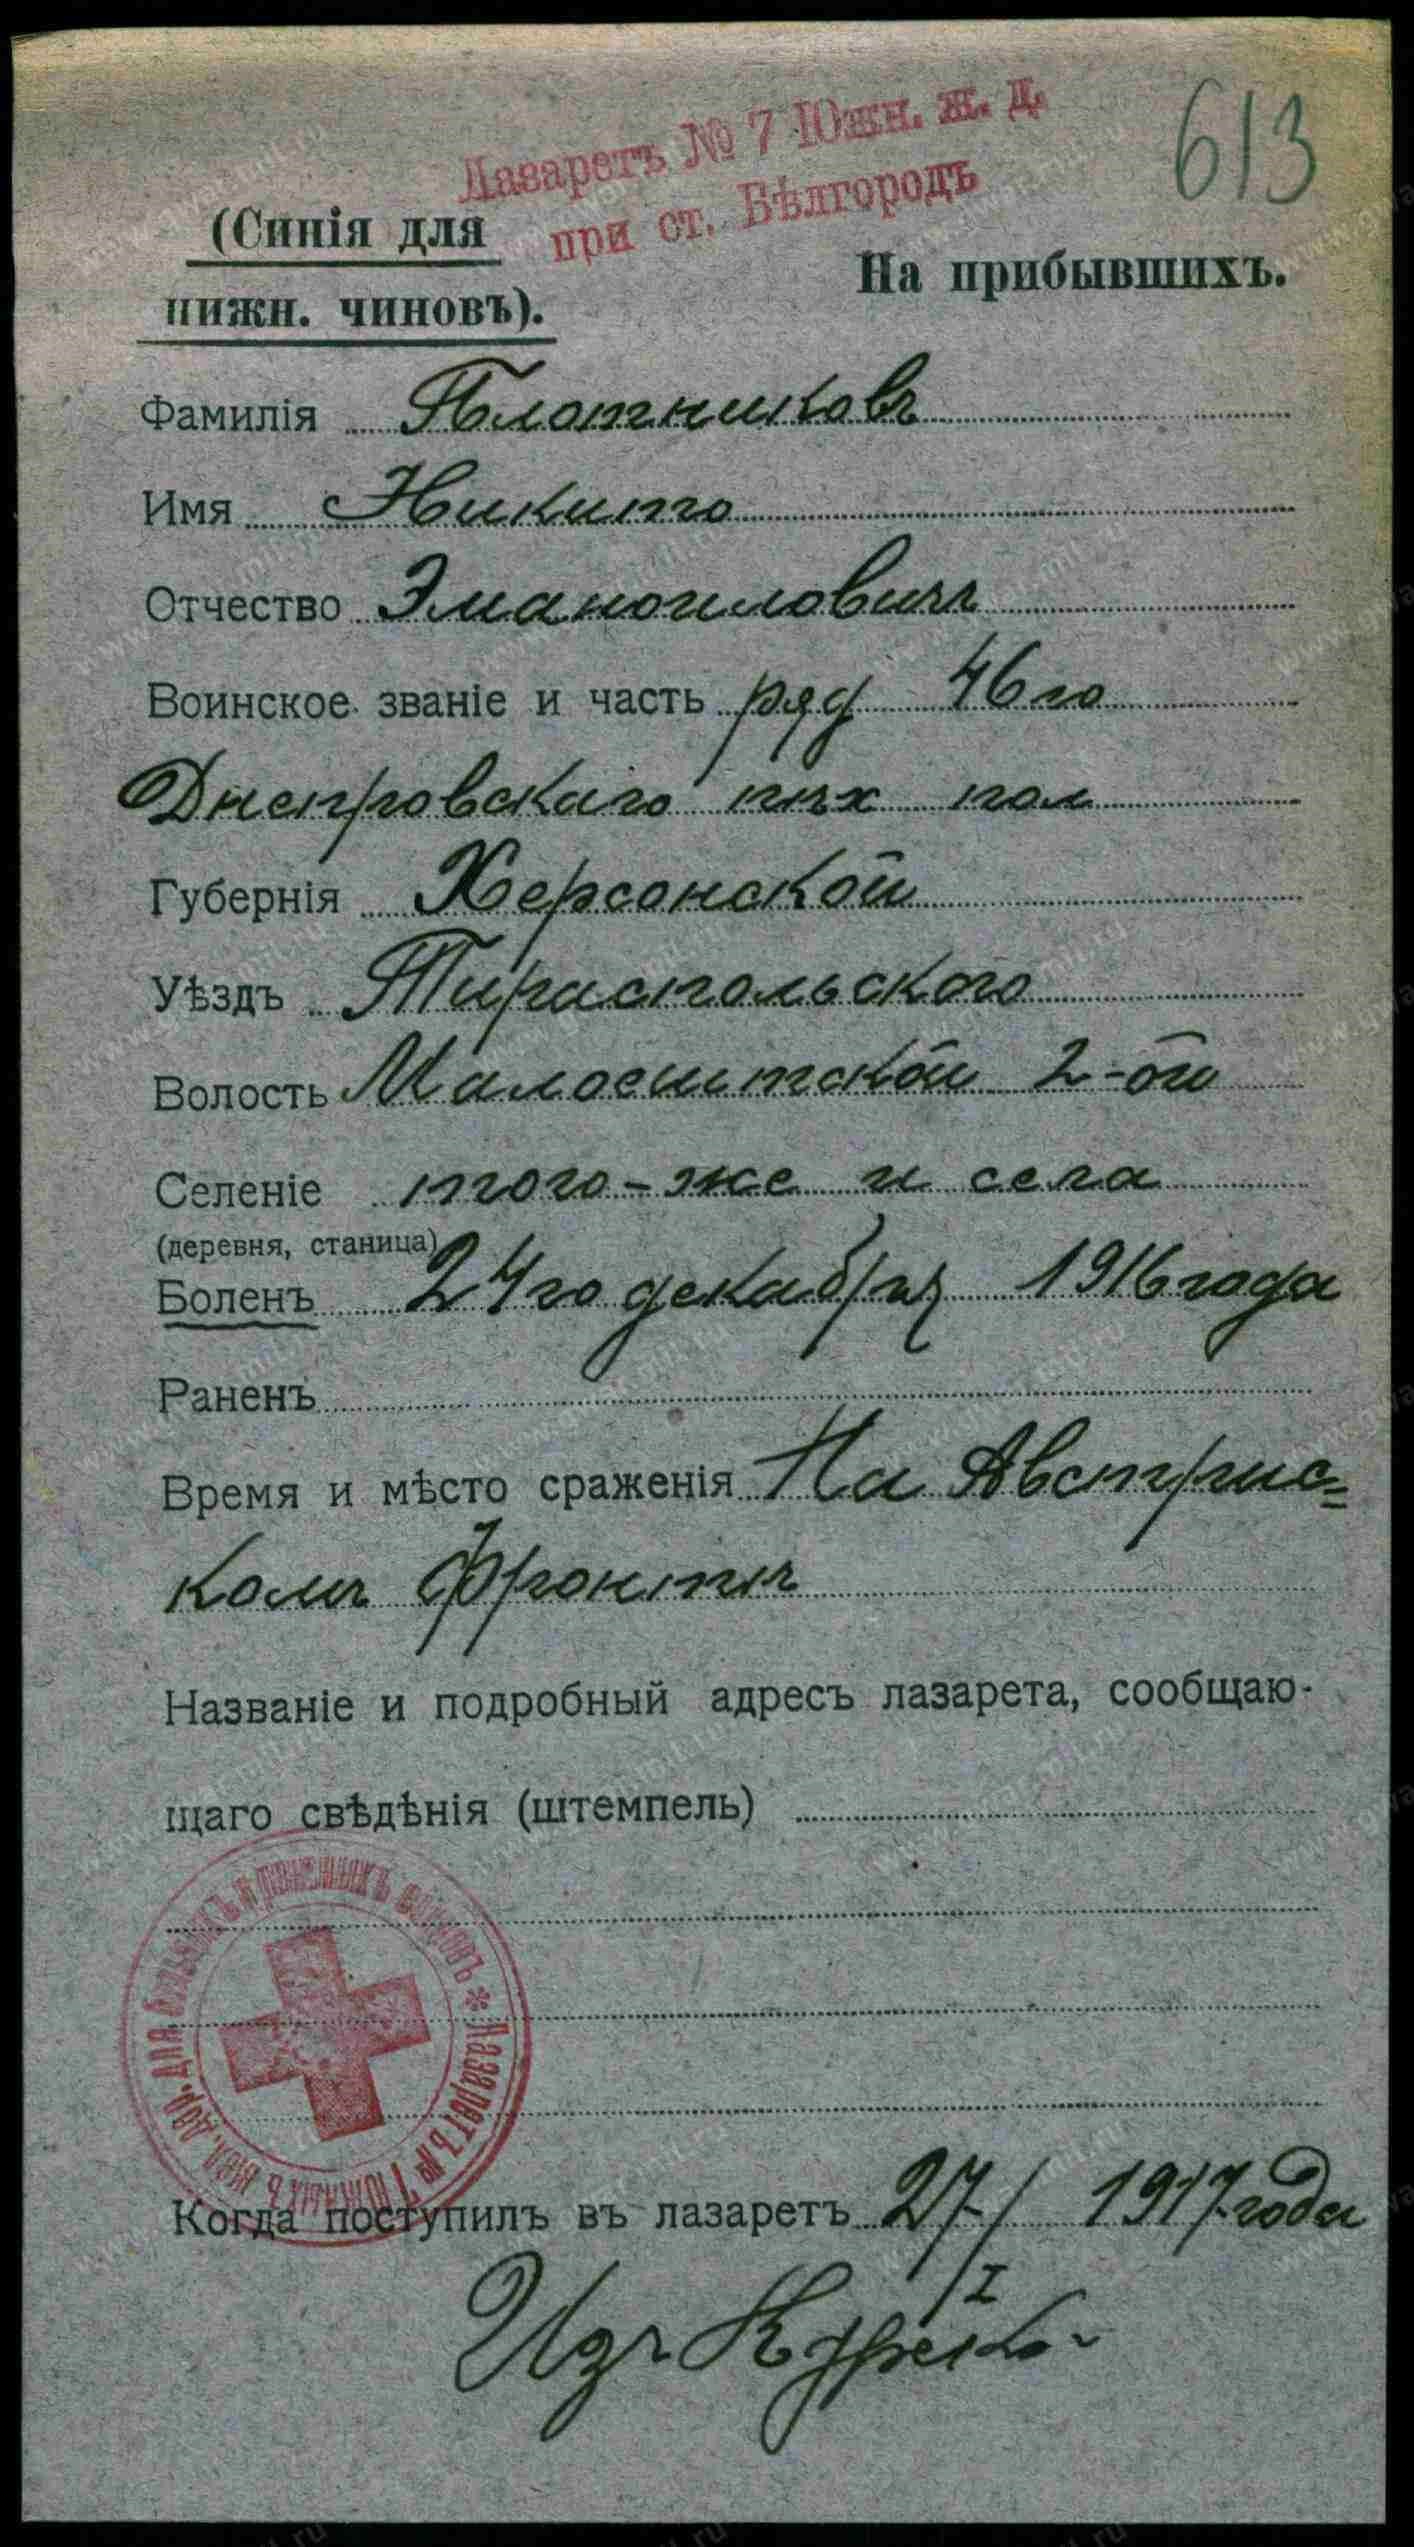 613
Лазаретъ № 7 Южн. ж. д.
при ст. Бѣлгородъ
(Синія для
нижн. чиновъ).
На прибывшихъ.
Фамилія Плотниковъ
Имя Никито
Отчество Эмануиловичъ
Воинское званіе и часть ряд 46го
Днепровскаго пѣх пол
Губернія Херсонской
Уѣздъ Тираспольского
Волость 2-ой
Селеніе того-же и села
(деревня, станица)
Боленъ 24го декабря 1916 года
Раненъ
Время и мѣсто сраженія На Австрис=
комъ Фронтѣ
Названіе и подробный адресъ лазарета, сообщаю-
щаго свѣдѣнія (штемпель)
Лазаретъ № 7 Южныхъ жел. дор. для больныхъ и раненыхъ воиновъ
Когда поступилъ въ лазаретъ 27/I 1917 года
Изъ Курска